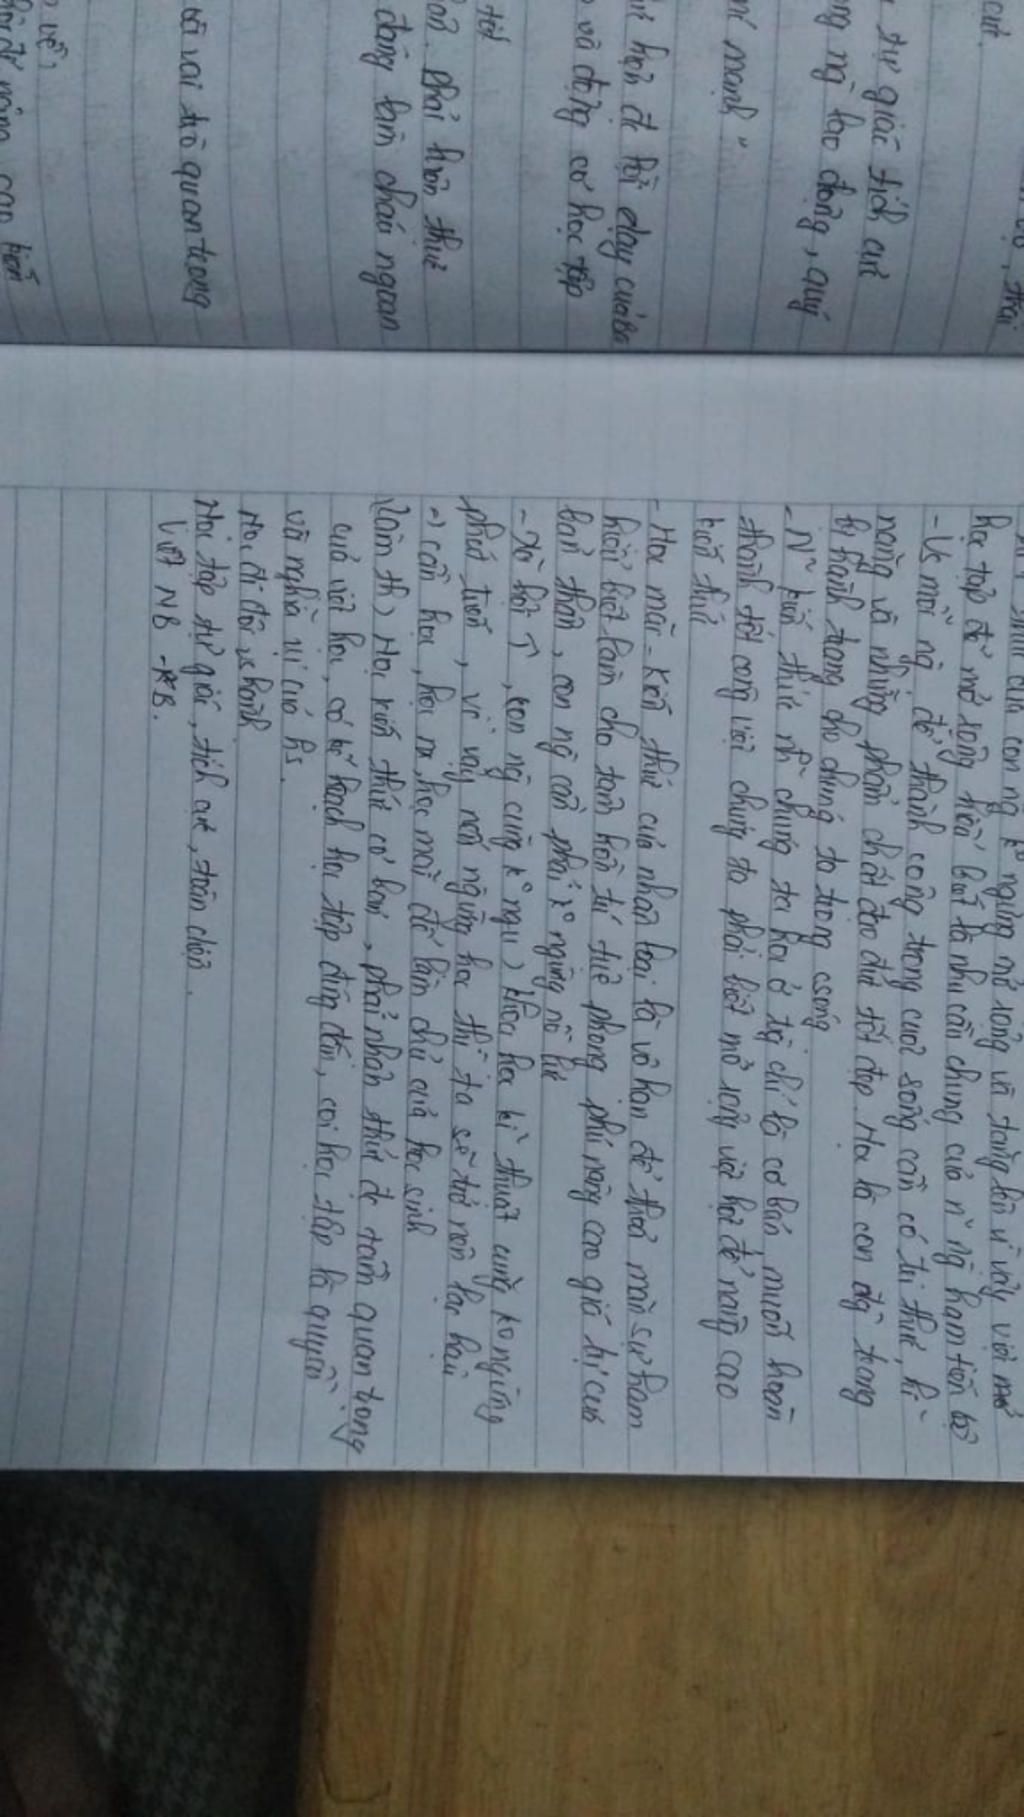 cực.
tự giác tích cực
ng ng lao động, quý
mí mạnh"
hận đc lời dạy của Ba
và động cơ học tập
tốt
phải luôn thực
đáng làm cháu ngoan
vai trò quan trọng
về,
nâng cao kiến
con ng k° ngừng mở rộng và tăng lên vì vậy việc
học tập để mở rộng hiểu biết là nhu cầu chung của n~ ng ham tiến bộ
- Vs mỗi ng, để thành công trong cuộc sống cần có tri thức, kĩ
năng và những phẩm chất đạo đức tốt đẹp. Học là con đg trong
hành trang cho chúng ta trong csống
- N~ kiến thức n~ chúng ta học ở tg chỉ là cơ bản muốn hoàn
thành tốt công việc chúng ta phải biết mở rộng việc học để nâng cao
kiến thức
- Học mãi - kiến thức của nhân loại là vô hạn để thoả mãn sự ham
hiểu biết làm cho tâm hồn trí tuệ phong phú nâng cao giá trị của
bản thân, con ng cần phải k° ngừng nỗ lực
- Xã hội ↑, con ng cũng k° ngu) khoa học kĩ thuật cũng ko ngừng
phát triển, vì vậy nếu ngừng học thì ta sẽ trở nên lạc hậu
=) cần học, học nx, học mãi để làm chủ của học sinh
Học kiến thức cơ bản, phải nhận thức đc tầm quan trọng
của việc học, có kế hoạch học tập đúng đắn, coi học tập là quyền
và nghĩa vụ của hs.
Học đi đôi vs hành
Học tập tự giác, tích cực, toàn diện.
Viết NB - KB.